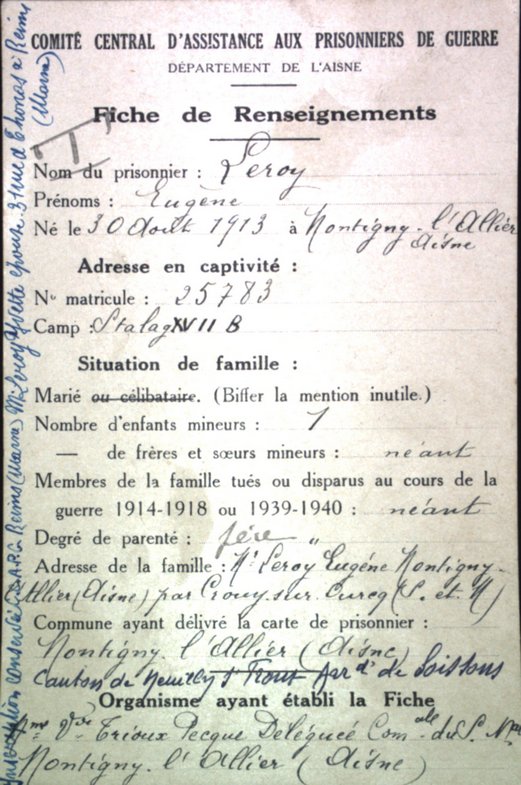 COMITÉ CENTRAL D'ASSISTANCE AUX PRISONNIERS DE GUERRE
DÉPARTEMENT DE L'AISNE
Fiche de Renseignements
Nom du prisonnier : Leroy
Prénoms : Eugène
Né le 30 Août 1913 à Montigny-l'Allier
Aisne
Adresse en captivité :
N° matricule : 25783
Camp : Stalag XVII B
Situation de famille :
Marié ou célibataire. (Biffer la mention inutile.)
Nombre d'enfants mineurs : 1
— de frères et sœurs mineurs : néant
Membres de la famille tués ou disparus au cours de la
guerre 1914-1918 ou 1939-1940 : néant
Degré de parenté : père "
Adresse de la famille : Mr Leroy Eugène Montigny-
l'Allier (Aisne) par Crouy-sur-Ourcq (S. et M)
Commune ayant délivré la carte de prisonnier :
Montigny-l'Allier (Aisne)
Canton de Neuilly St Front Arrdt de Soissons
Organisme ayant établi la Fiche
Mme Vve Trioux Pecque Déléguée Comale du S. Nal
Montigny-l'Allier (Aisne)
Reims (Marne) Me Leroy Yvette épouse 31 rue à Reims
(Marne)